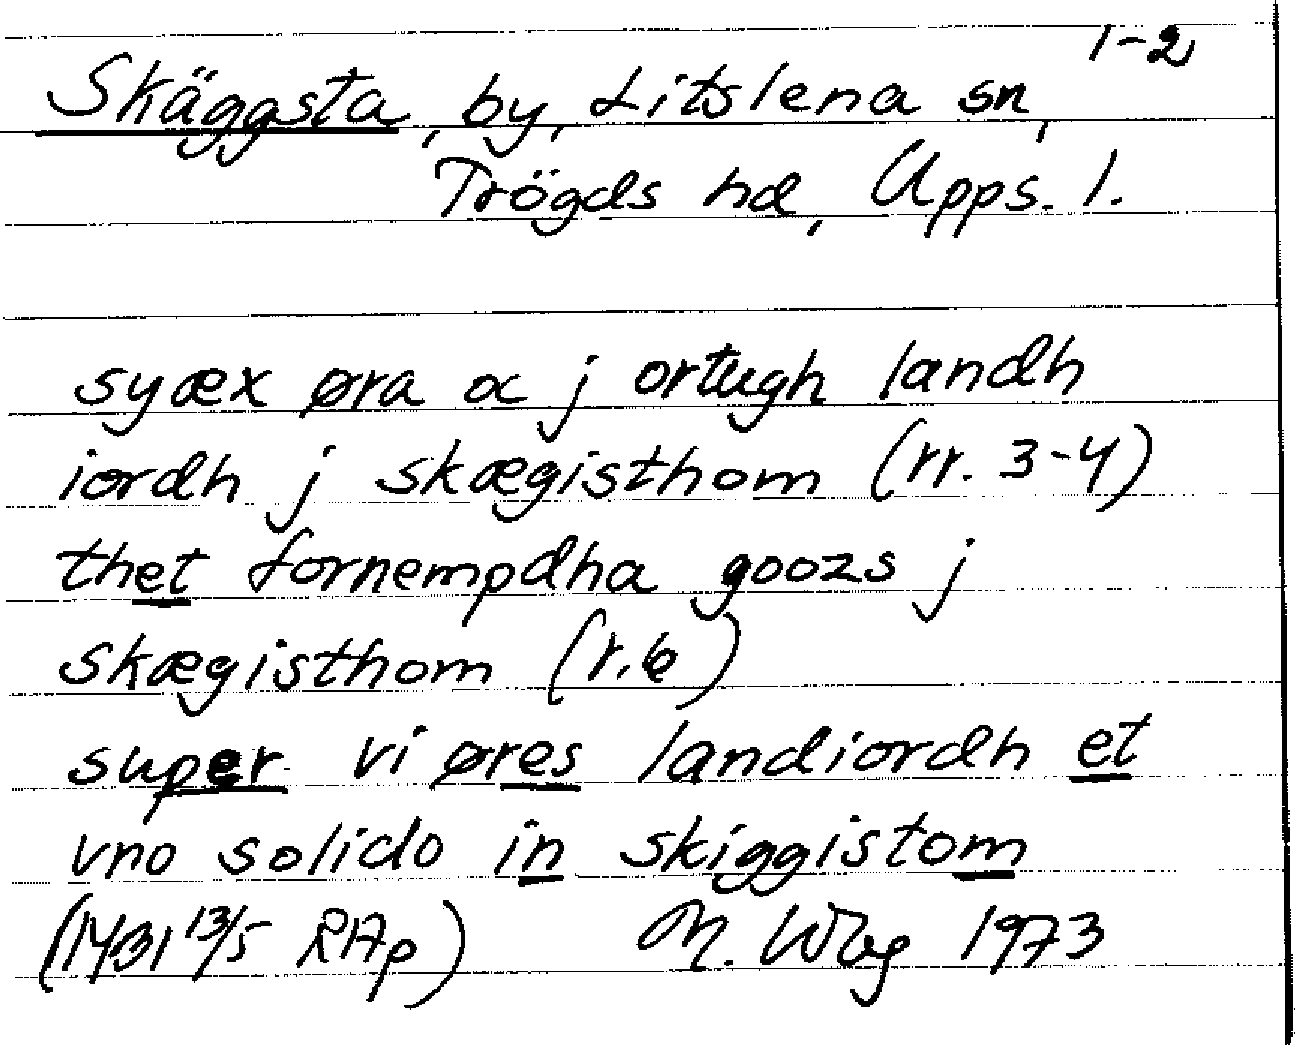 1-2
Skäggsta, by, Litslena sn,
Trögds hd, Upps. l.
syæx øra oc j ortugh landh
iordh j skægisthom (rr. 3-4)
thet fornempdha goozs j
skægisthom (r.6)
super vi øres landiordh et
vno solido in skiggistom
(1431 13/5 RAp) M. Wbg 1973